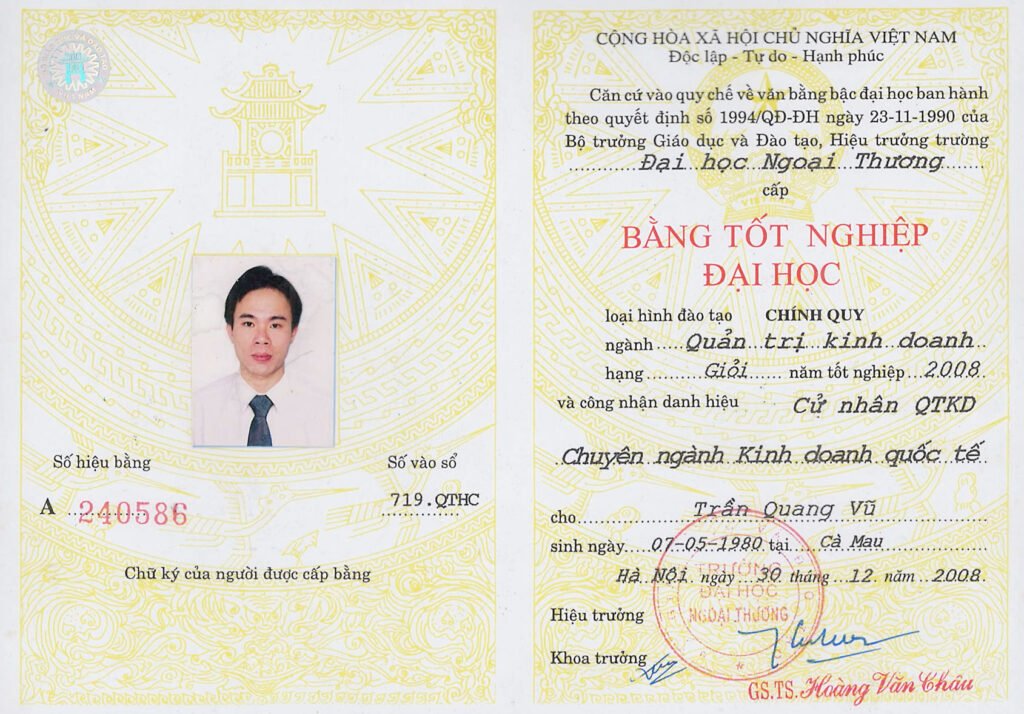 Số hiệu bằng
Số vào sổ
A 240586
719.QTHC
Chữ ký của người được cấp bằng
CỘNG HÒA XÃ HỘI CHỦ NGHĨA VIỆT NAM
Độc lập - Tự do - Hạnh phúc
Căn cứ vào quy chế về văn bằng bậc đại học ban hành
theo quyết định số 1994/QĐ-ĐH ngày 23-11-1990 của
Bộ trưởng Giáo dục và Đào tạo, Hiệu trưởng trường
Đại học Ngoại Thương
cấp
BẰNG TỐT NGHIỆP
ĐẠI HỌC
loại hình đào tạo CHÍNH QUY
ngành Quản trị kinh doanh
hạng Giỏi năm tốt nghiệp 2008
và công nhận danh hiệu Cử nhân QTKD
Chuyên ngành Kinh doanh quốc tế
cho Trần Quang Vũ
sinh ngày 07-05-1980 tại Cà Mau
Hà Nội ngày 30 tháng 12. năm 2008.
TRƯỜNG
ĐẠI HỌC
NGOẠI THƯƠNG
Hiệu trưởng
Khoa trưởng
GS.TS. Hoàng Văn Châu